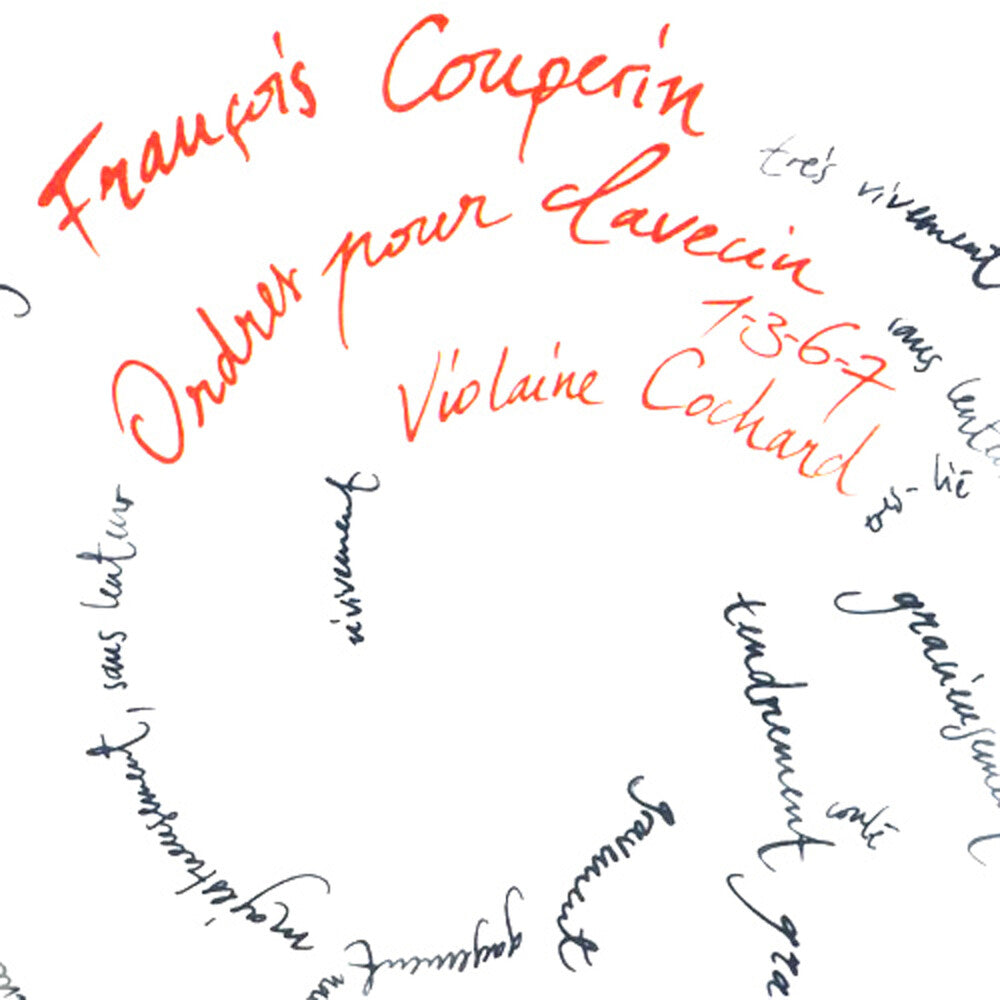 François Couperin
Ordres pour clavecin
1-3-6-7
Violaine Cochard
très vivement
sans lenteur
lié
vivement
sans lenteur
majestueusement,
gayement
gravement
tendrement
coulé
gracieusement
gra